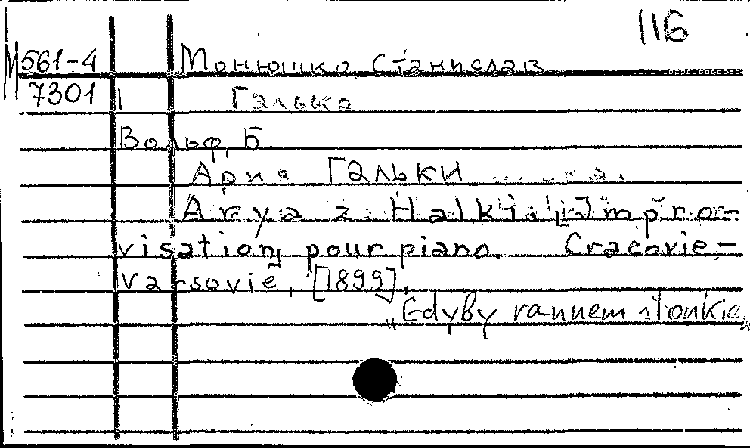 116
М 561-4 Монюшко Станислав
7301 Галька
Вольф, Б.
Ария Гальки
Arya z Halki. Impro-
visation pour piano. Cracovie,-
Varsovie, [1899].
„Edyby rannem słonkie„